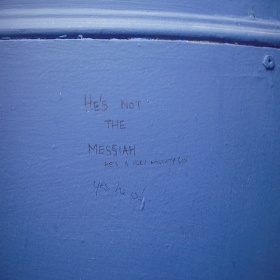 HE'S NOT
THE
MESSIAH
HE'S A VERY NAUGHTY BOY